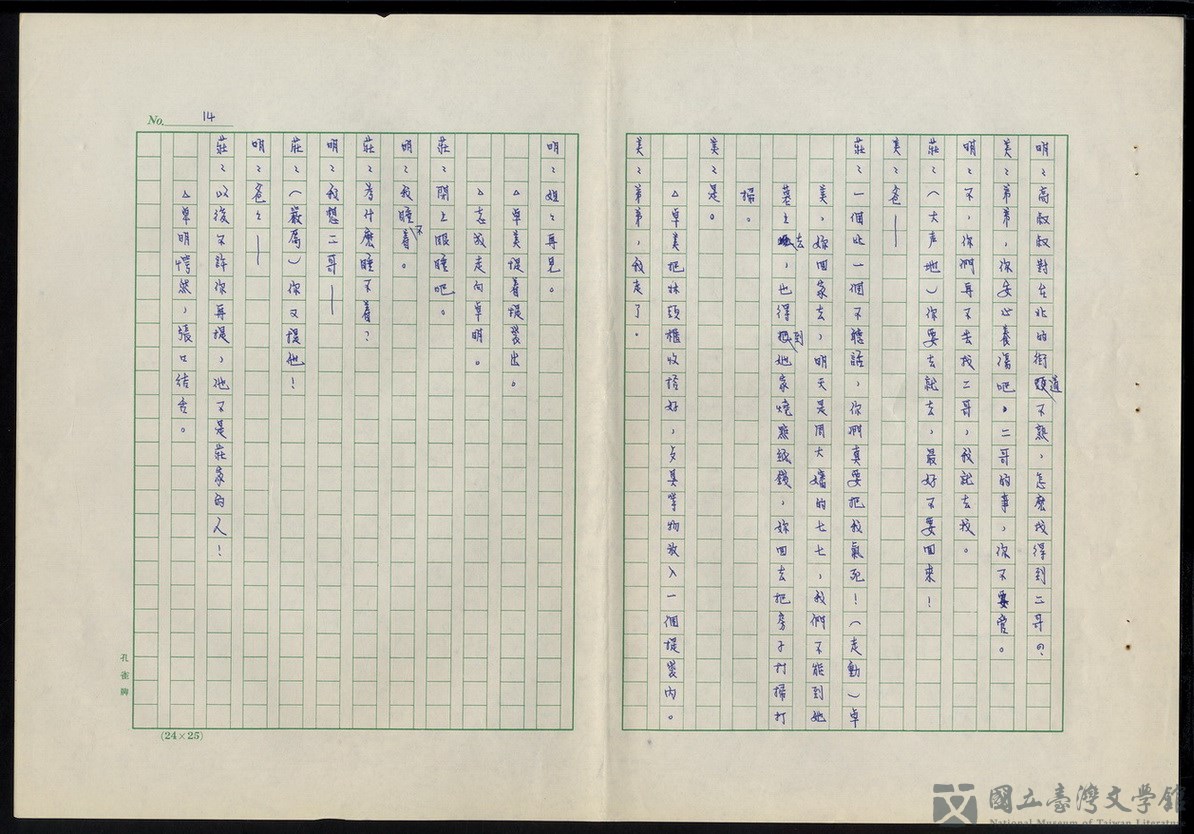 明：高叔叔對台北的街道不熟，怎麼找得到二哥的？
美：弟弟，你安心養傷吧。二哥的事，你不要管。
明：不，你們再不去找二哥，我就去找。
莊：（大声地）你要去就去，最好不要回來！
美：爸——
莊：一個比一個不聽話，你們真要把我氣死！（走動）卓
美，妳回家去，明天是周大嬸的七七，我們不能到她
墓上去，也得到她家燒點紙錢，妳回去把房子打掃打
掃。
美：是。
△卓美把床頭櫃收拾好，夕具等物放入一個提袋內。
美：弟弟，我走了。
No. 14
明：姐：再見。
△卓美提着提袋出。
△志成走向卓明。
莊：閉上眼睡吧。
明：我睡不着。
莊：為什麼睡不着？
明：我想二哥——
莊：（嚴厲）你又提他！
明：爸：——
莊：以後不許你再提，他不是莊家的人！
△卓明愕然，張口結舌。
孔雀牌
(24×25)
國立臺灣文學館
National Museum of Taiwan Literature